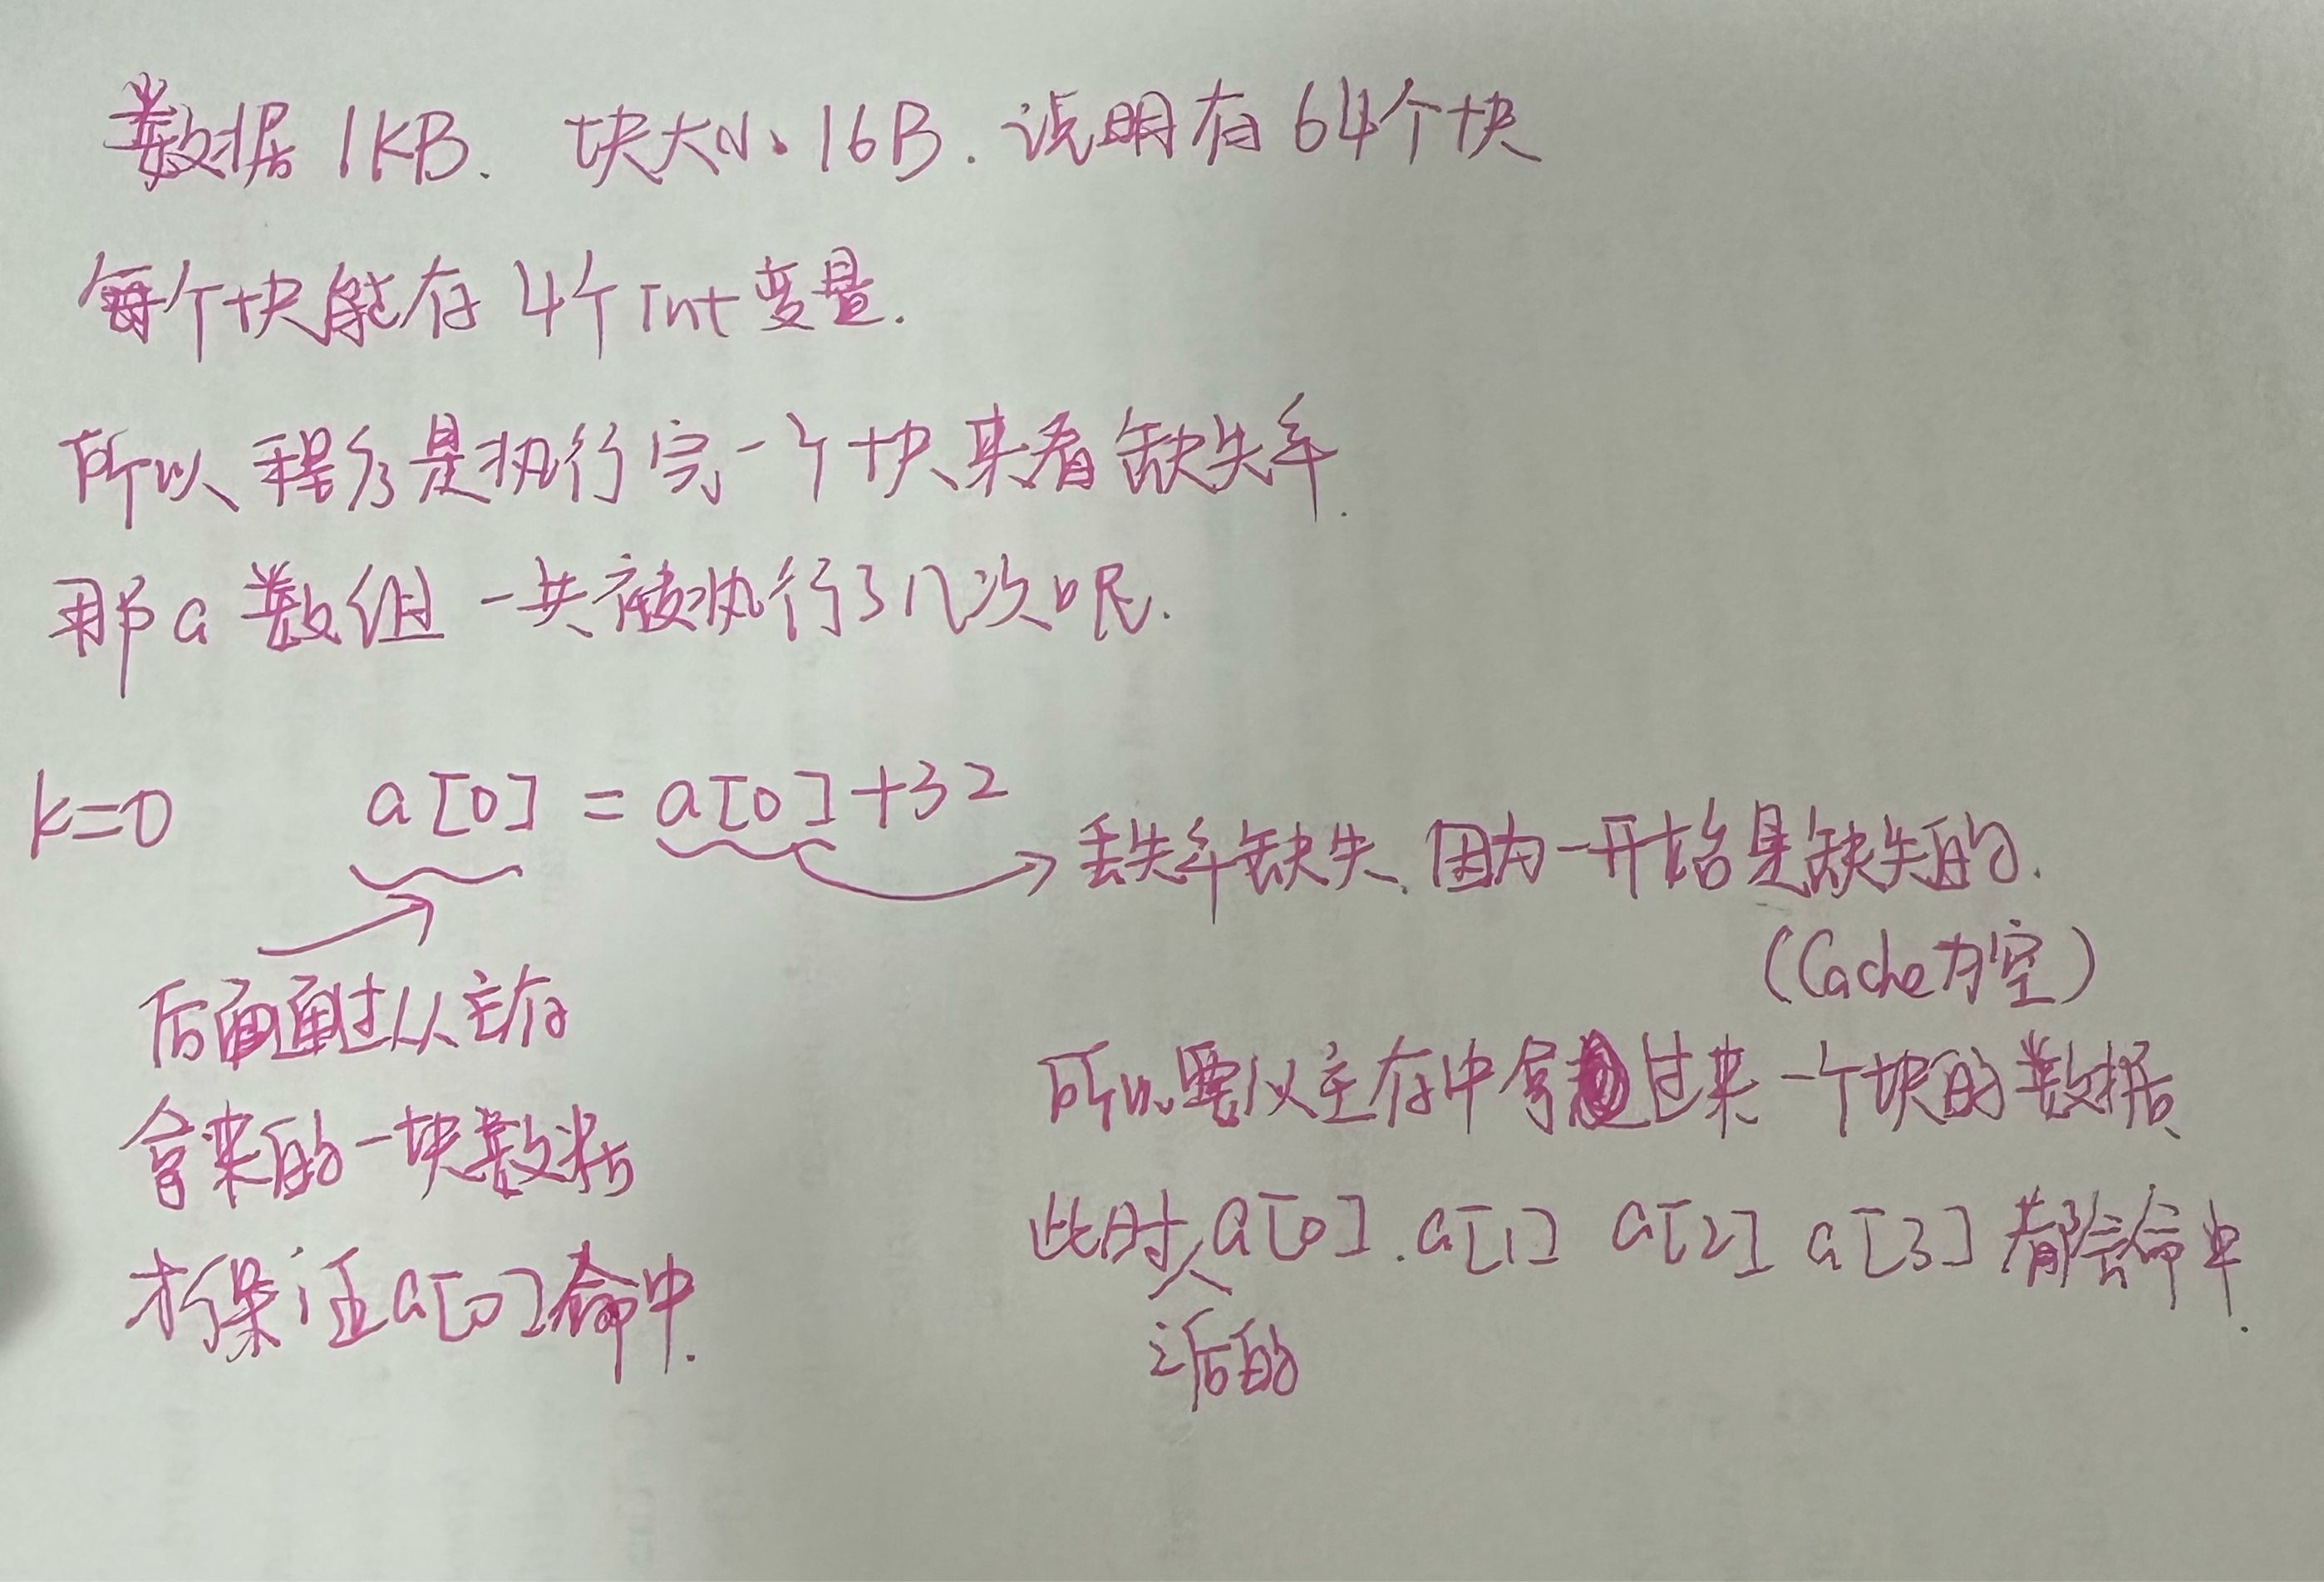 数据1KB. 块大小16B. 说明有64个块
每个块能存4个Int变量.
所以程序是执行完一个块来看缺失率.
那a数组一共被执行了几次呢.
k=0 a[0] = a[0]+32
丢失率缺失. 因为一开始是缺失的.
(Cache为空)
所以要从主存中拿过来一个块的数据
此时之后的a[0].a[1] a[2] a[3]都会命中.
后面通过从主存
拿来的一块数据
才保证a[0]命中.